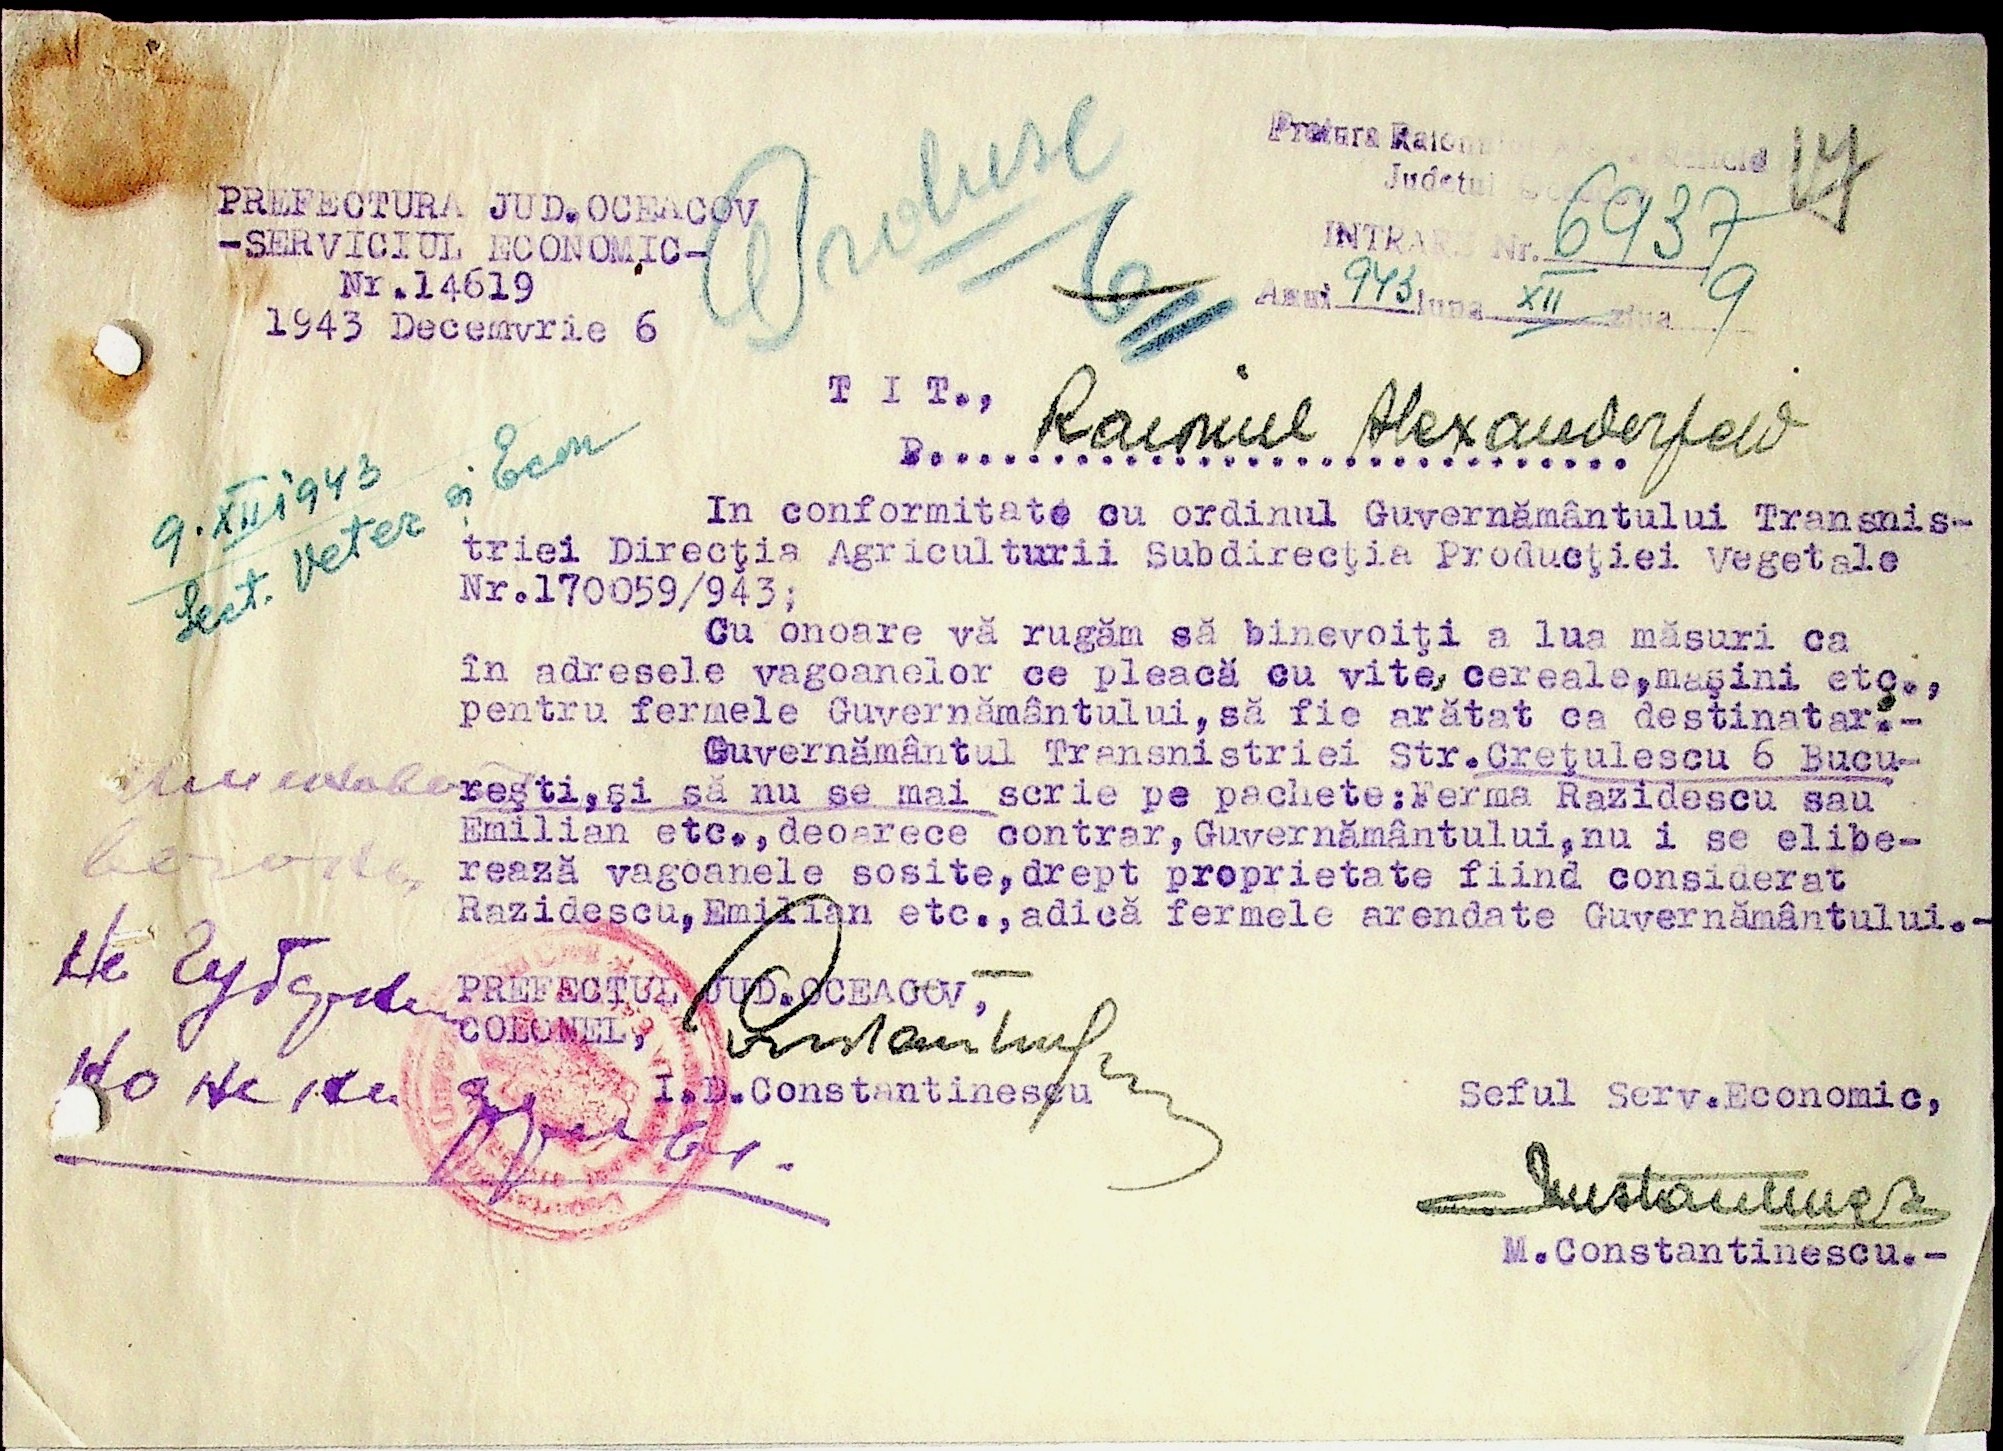 PREFECTURA JUD.OCEACOV
-SERVICIUL ECONOMIC-
Nr.14619
1943 Decemvrie 6
Produse
Pretura Raionului
Judetul
INTRARE Nr. 6937
Anul 943 luna XII ziua 9
T I T.,
Raionul Alexanderfeld
P..............................
9.XII 1943
Sect. Veter și Econ
In conformitate cu ordinul Guvernământului Transnis-
triei Direcţia Agriculturii Subdirecţia Producţiei Vegetale
Nr.170059/943;
Cu onoare vă rugăm să binevoiţi a lua măsuri ca
în adresele vagoanelor ce pleacă cu vite,cereale,maşini etc.,
pentru fermele Guvernământului,să fie arătat ca destinatar.-
Guvernământul Transnistriei Str.Creţulescu 6 Bucu-
reşti,şi să nu se mai scrie pe pachete:Ferma Razidescu sau
Emilian etc.,deoarece contrar,Guvernământului,nu i se elibe-
rează vagoanele sosite,drept proprietate fiind considerat
Razidescu,Emilian etc.,adică fermele arendate Guvernământului.-
PREFECTUL JUD.OCEACOV,
COLONEL,
I.D.Constantinescu
Seful Serv.Economic,
M.Constantinescu.-